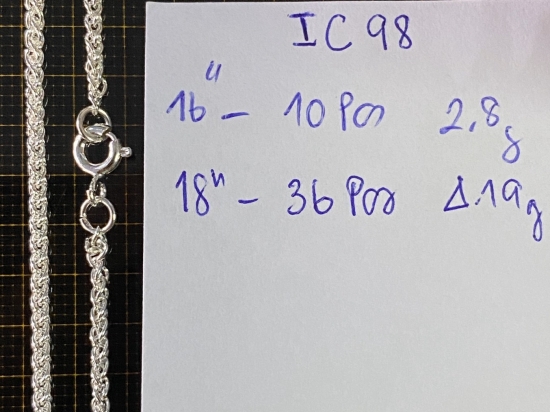 IC98
16" - 10 Pcs 2.8g
18" - 36 Pcs